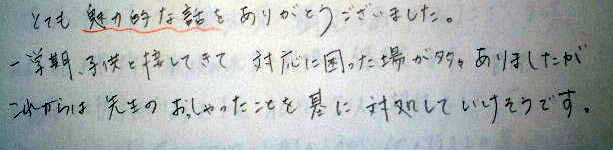 とても魅力的な話をありがとうございました。
一学期、子供と接してきて 対応に困った場が多々ありましたが
これからは先生のおっしゃったことを基に対処していけそうです。